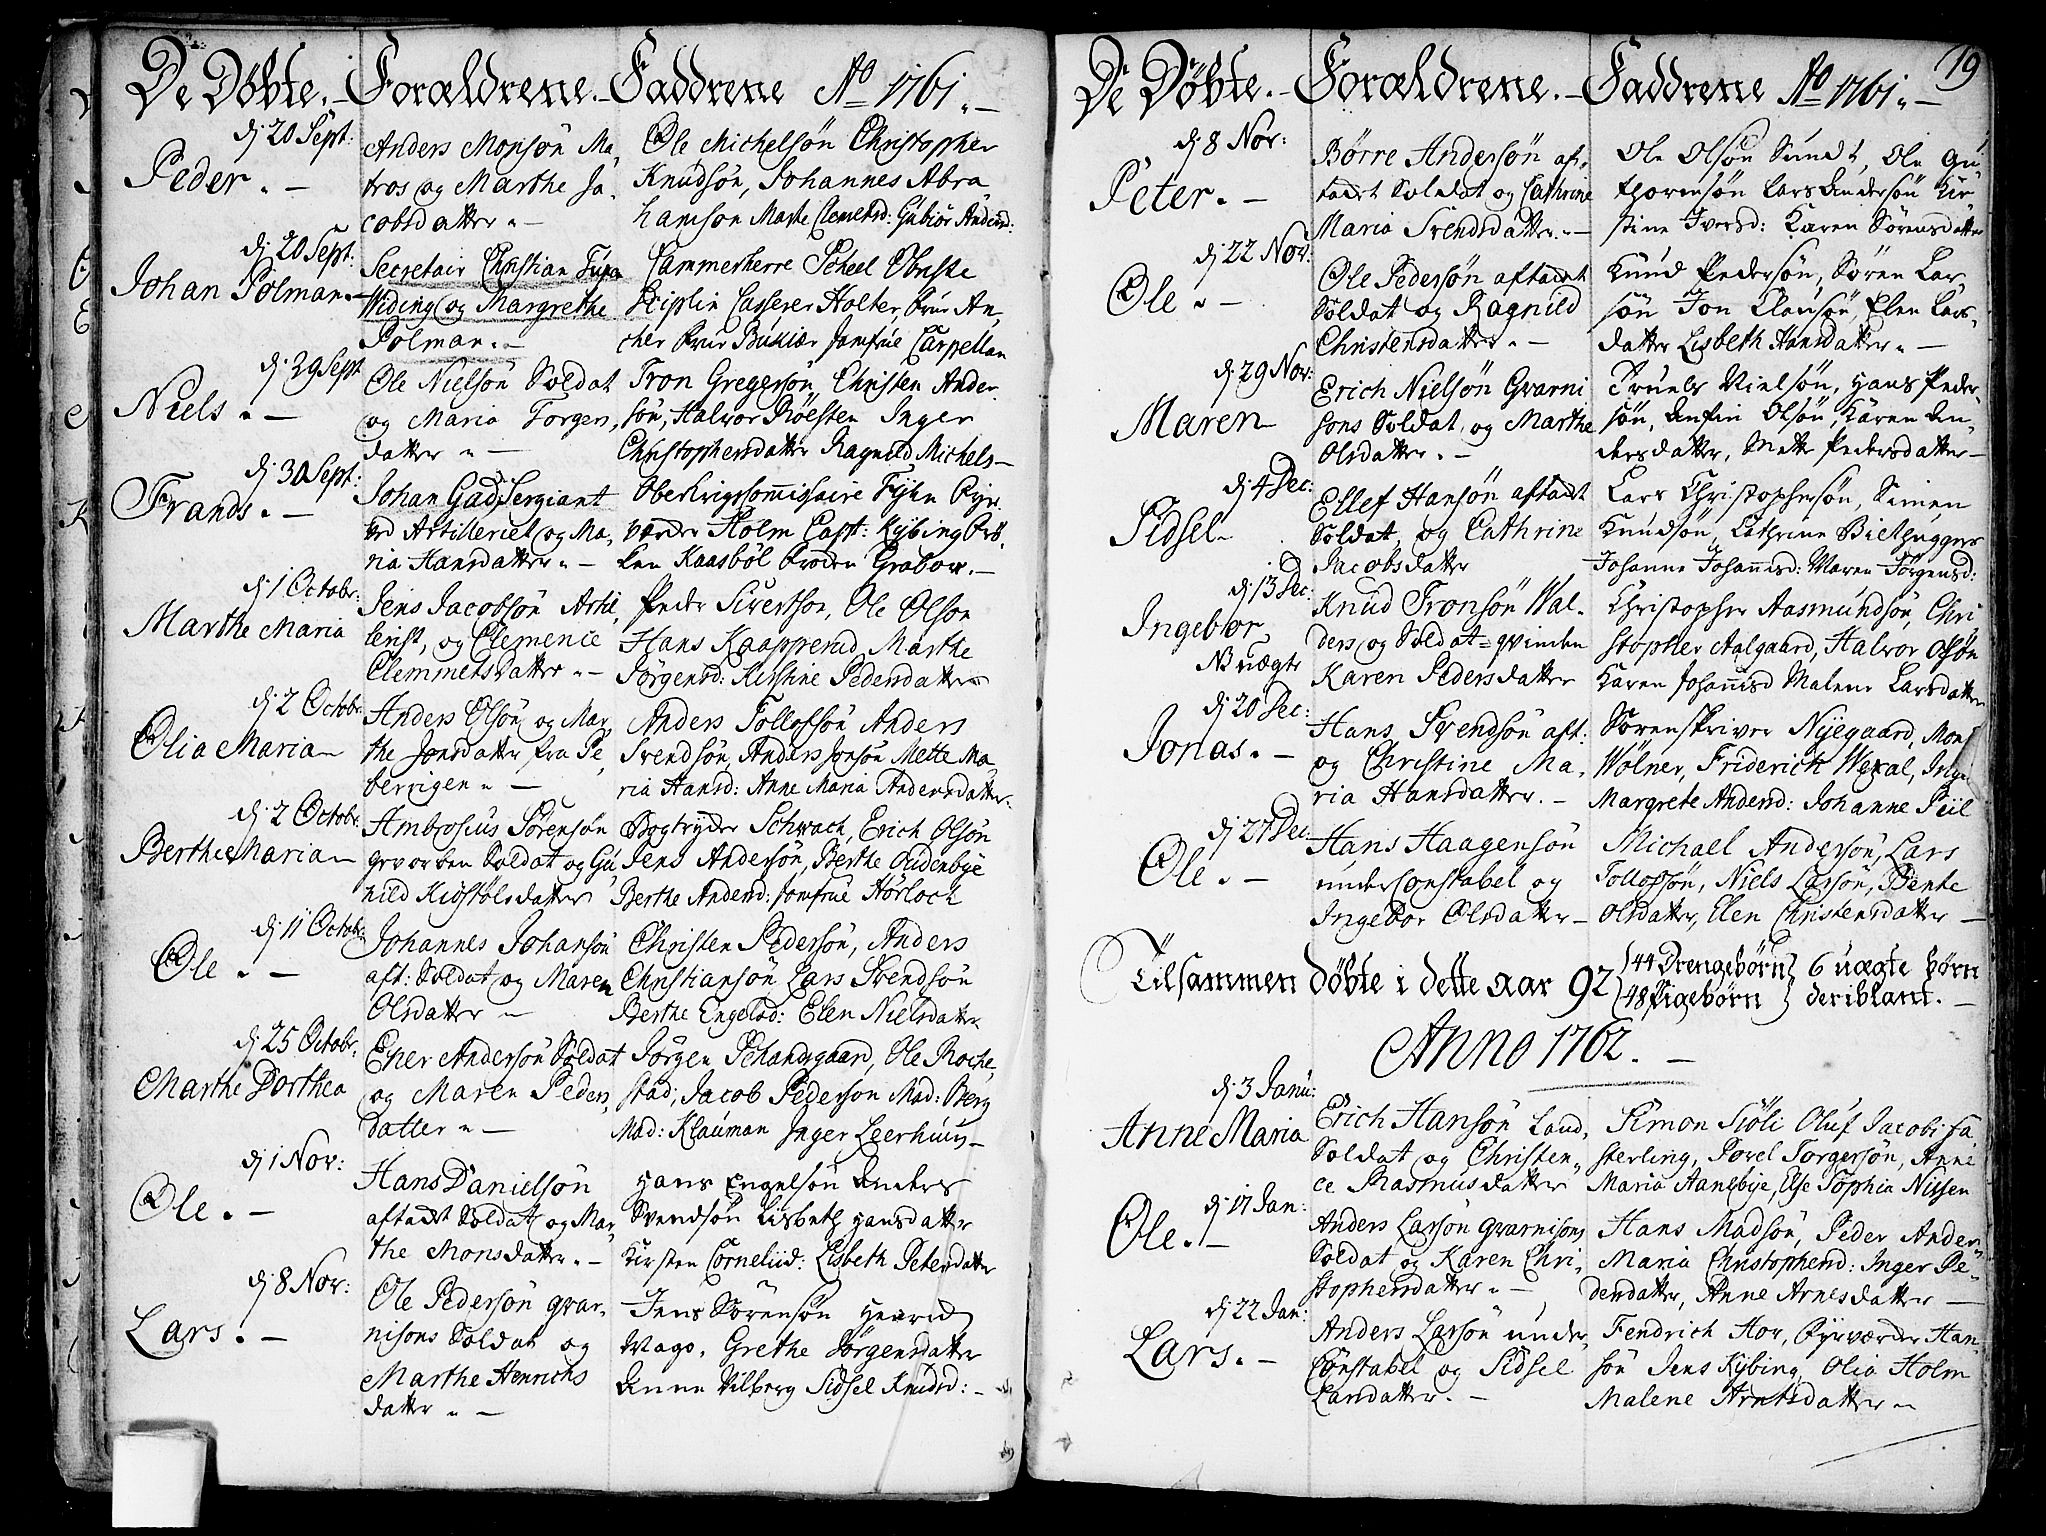 De Döbte. – Forældrene. – Faddrene Ao 1761. –
dj 20 Sept:
Peder. –
Anders Monsön Ma,
tros og Marthe Ja,
cobsdatter. –
Ole Michelsön Christopher
Knudsön, Johannes Abra
hamsön Marte Clemetsd: Gubiör Andersd:
dj 20 Sept:
Johan Polman. –
Secretair Christian
Widing og Margrethe
Polman. –
Cammerherre Obriste
Casserer Holter, frue An,
cher frue Jomfrue Cappellan
dj 29 Sept
Niels. –
Ole Nielsön Soldat
og Maria Torgers,
datter. –
Tron Gregersön, Christen Ander
sön, Halvor Röesten Inger
Christophersdatter Ragnild Michels –
dj 30 Sept:
Frands. –
Johan Gadj Sergiant
ved Artilleriet og Ma,
ria Hansdatter. –
Oberkrigscommissaire Fyhn Fyr
værder Holm Capt: Kybing Frö,
ken Kaasböl Fröden Grabow. –
dj 1 Octobr:
Marthe Maria
Jens Jacobsön Artil,
lerist, og Clemence
Clemmetsdatter. –
Peder Sivertson, Ole Olson
Hans Kaapperud Marthe
Jörgensd: Kirstine Pedersdatter
dj 2 Octobr:
Olia Maria –
Anders Olsön og Mar,
the Jonsdatter fra Pe,
bervigen. –
Anders Tollofsön Anders
Svendsön, Anders Jonsön Mette Ma,
ria Hansd: Anne Maria Andersdatter.
dj 2 Octobr:
Berthe Maria –
Ambrosius Sörensön
gevorben Soldat og Gu
nild Kidstölsdatter
Bogtryder Schwach, Erich Olsön
Jens Andersön, Berthe Oudenbye
Berthe Andersd: Jomfrue Hörlock
dj 11 Octobr:
Ole. –
Johannes Johansön
aft: Soldat og Maren
Olsdatter –
Christen Pedersön, Anders
Christiansön Lars Svendsön
Berthe Engelsd: Elen Nielsdatter
dj 25 Octobr,
Marthe Dorthea
Ener Andersön Soldat
og Maren Peders,
datter. –
Jörgen Schandsgaard, Ole Roche,
stad, Jacob Pederson Mad: Berg
Mad: Klauman Inger Leerhuus –
dj 1 Nov:
Ole. –
Hans Danielsön
aftact Soldat og Mar,
the Monsdatter. –
Hans Engelsön Anders
Svendsön Lisbeth Hansdatter
Kirsten Corneliid: Lisbeth Petersdatter
dj 8 Nov:
Lars. –
Ole Pedersön gvar,
nisons Soldat og
Marthe Henrichs
datter. –
Jens Sörensön Henrich
Wago. Grethe Jörgensdatter
Anne Vilberg Sidsel Knudsd: –
19
De Döbte. – Forældrene. – Faddrene Ao 1761. –
dj 8 Nov:
Peter. –
Börre Andersön af,
tact Soldat og Cathrine
Maria Svendsdatter. –
Ole Olsön Sundt, Ole Gu
thormsön Lars Andersön Kir
stine Iversd: Karen Sörensdatter
dj 22 Nov:
Ole. –
Ole Pedersön aftact
Soldat og Ragnild
Christensdatter. –
Knud Pedersön, Sören Lar,
sön Jon Clausön, Elen Lars,
datter Lisbeth Hansdatter. –
dj 29 Nov:
Maren
Erich Nielsön Gvarni
sons Soldat, og Marthe
Olsdatter. –
Truels Nielsön, Hans Peder,
sön, Anfin Olsön, Karen An,
dersdatter, Mette Pedersdatter –
dj 4 Dec:
Sidsel –
Ellef Hansön aftact
Soldat, og Cathrine
Jacobsdatter
Lars Christophersön, Simen
Knudsön, Cathrine Bilthuggers
Johanne Johannisd: Maren Jörgensd:
dj 13 Dec
Ingebor
NB uægte
Knud Tronsön Wal-
ders og Soldat-qvinden
Karen Pedersdatter
Christopher Aasmundsön, Chri
stopher Aalgaard, Halvor Olsön
Karen Johannisd Malene Larsdatter
dj 20 Dec:
Jonas. –
Hans Svendsön aft:
og Christine Ma,
ria Hansdatter. –
Sorenskriver Nyegaard, Mons
Wölner, Friderich Wexal,
Margrete Andersd: Johanne Piil
dj 27 Dec:
Ole. –
Hans Haagensön
underConstabel og
Ingebor Olsdatter –
Michael Andersön, Lars
Tollofsön, Niels Larsön, Bente
Olsdatter, Elen Christensdatter –
Tilsammen döbte i dette aar 92 44 Drengebörn 6 uægte börn
48 Pigebörn deriblant. –
Anno 1762. –
dj 3 Janu:
Anne Maria
Erich Hansön Land,
Soldat og Christen,
ce Rasmusdatter
Simon Siöli Oluf Jacobi Fa,
sterling, Povel Torgersön, Anne
Maria Aanebye, Else Sophia Nissen
dj 17 Jan:
Ole. –
Anders Larsön Gvarnisons
Soldat og Karen Chri,
stophersdatter. –
Hans Madsön, Peder Anders
Maria Christophersd: Inger Pe,
dersdatter, Anne Arnesdatter –
dj 22 Jan:
Lars. –
Anders Larsön under
Constabel og Sidsel
Larsdatter. –
Fendrich Hor, Fyrværder Han,
sön Jens Kybing, Olia Holm
Malene Arntsdatter. –